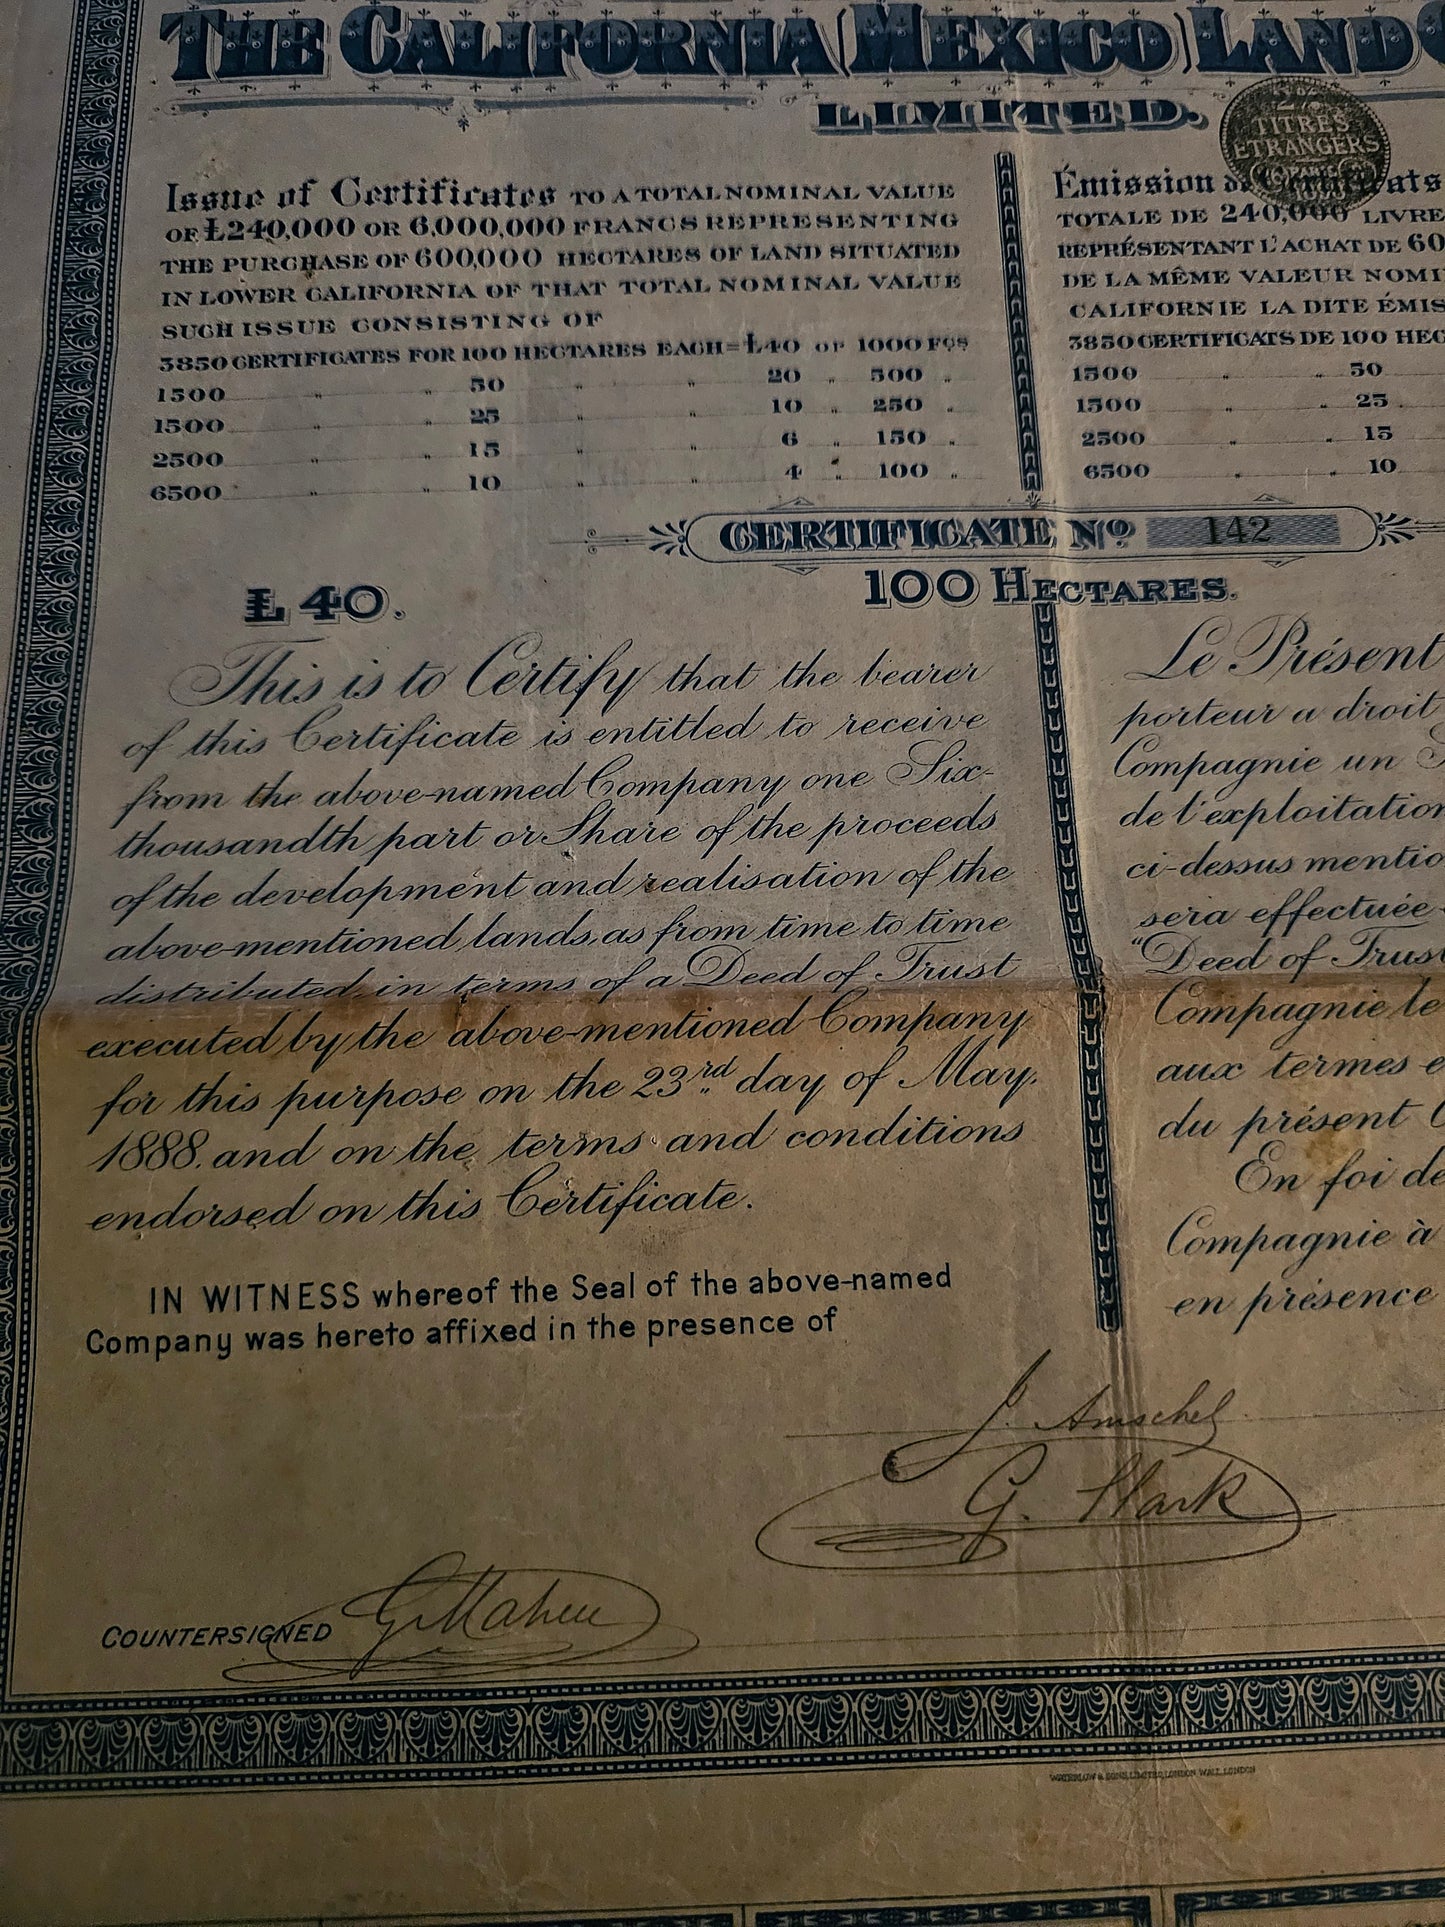 THE CALIFORNIA (MEXICO) LAND
LIMITED.
2%
TITRES
ETRANGERS
Issue of Certificates TO A TOTAL NOMINAL VALUE
OF £240,000 OR 6,000,000 FRANCS REPRESENTING
THE PURCHASE OF 600,000 HECTARES OF LAND SITUATED
IN LOWER CALIFORNIA OF THAT TOTAL NOMINAL VALUE
SUCH ISSUE CONSISTING OF
3850 CERTIFICATES FOR 100 HECTARES EACH = £40 OR 1000 FCS
1500 " " 50 " " 20 " 500 "
1500 " " 25 " " 10 " 250 "
2500 " " 15 " " 6 " 150 "
6500 " " 10 " " 4 " 100 "
Émission de Certificats
TOTALE DE 240,000 LIVRE
REPRÉSENTANT L'ACHAT DE 60
DE LA MÊME VALEUR NOMI
CALIFORNIE LA DITE ÉMIS
3850 CERTIFICATS DE 100 HEC
1500 " " 50
1500 " " 25
2500 " " 15
6500 " " 10
CERTIFICATE No. 142
£40.
100 HECTARES.
This is to Certify that the bearer
of this Certificate is entitled to receive
from the above-named Company one Six-
thousandth part or Share of the proceeds
of the development and realisation of the
above-mentioned lands, as from time to time
distributed in terms of a Deed of Trust
executed by the above-mentioned Company
for this purpose on the 23rd day of May,
1888. and on the terms and conditions
endorsed on this Certificate.
Le Présent
porteur a droit
Compagnie un S
de l'exploitation
ci-dessus mentio
sera effectuée
"Deed of Trust
Compagnie le
aux termes e
du présent C
En foi de
Compagnie à
en présence
IN WITNESS whereof the Seal of the above-named
Company was hereto affixed in the presence of
J. Amschel
G. Stark
COUNTERSIGNED
WATERLOW & SONS, LIMITED, LONDON WALL, LONDON